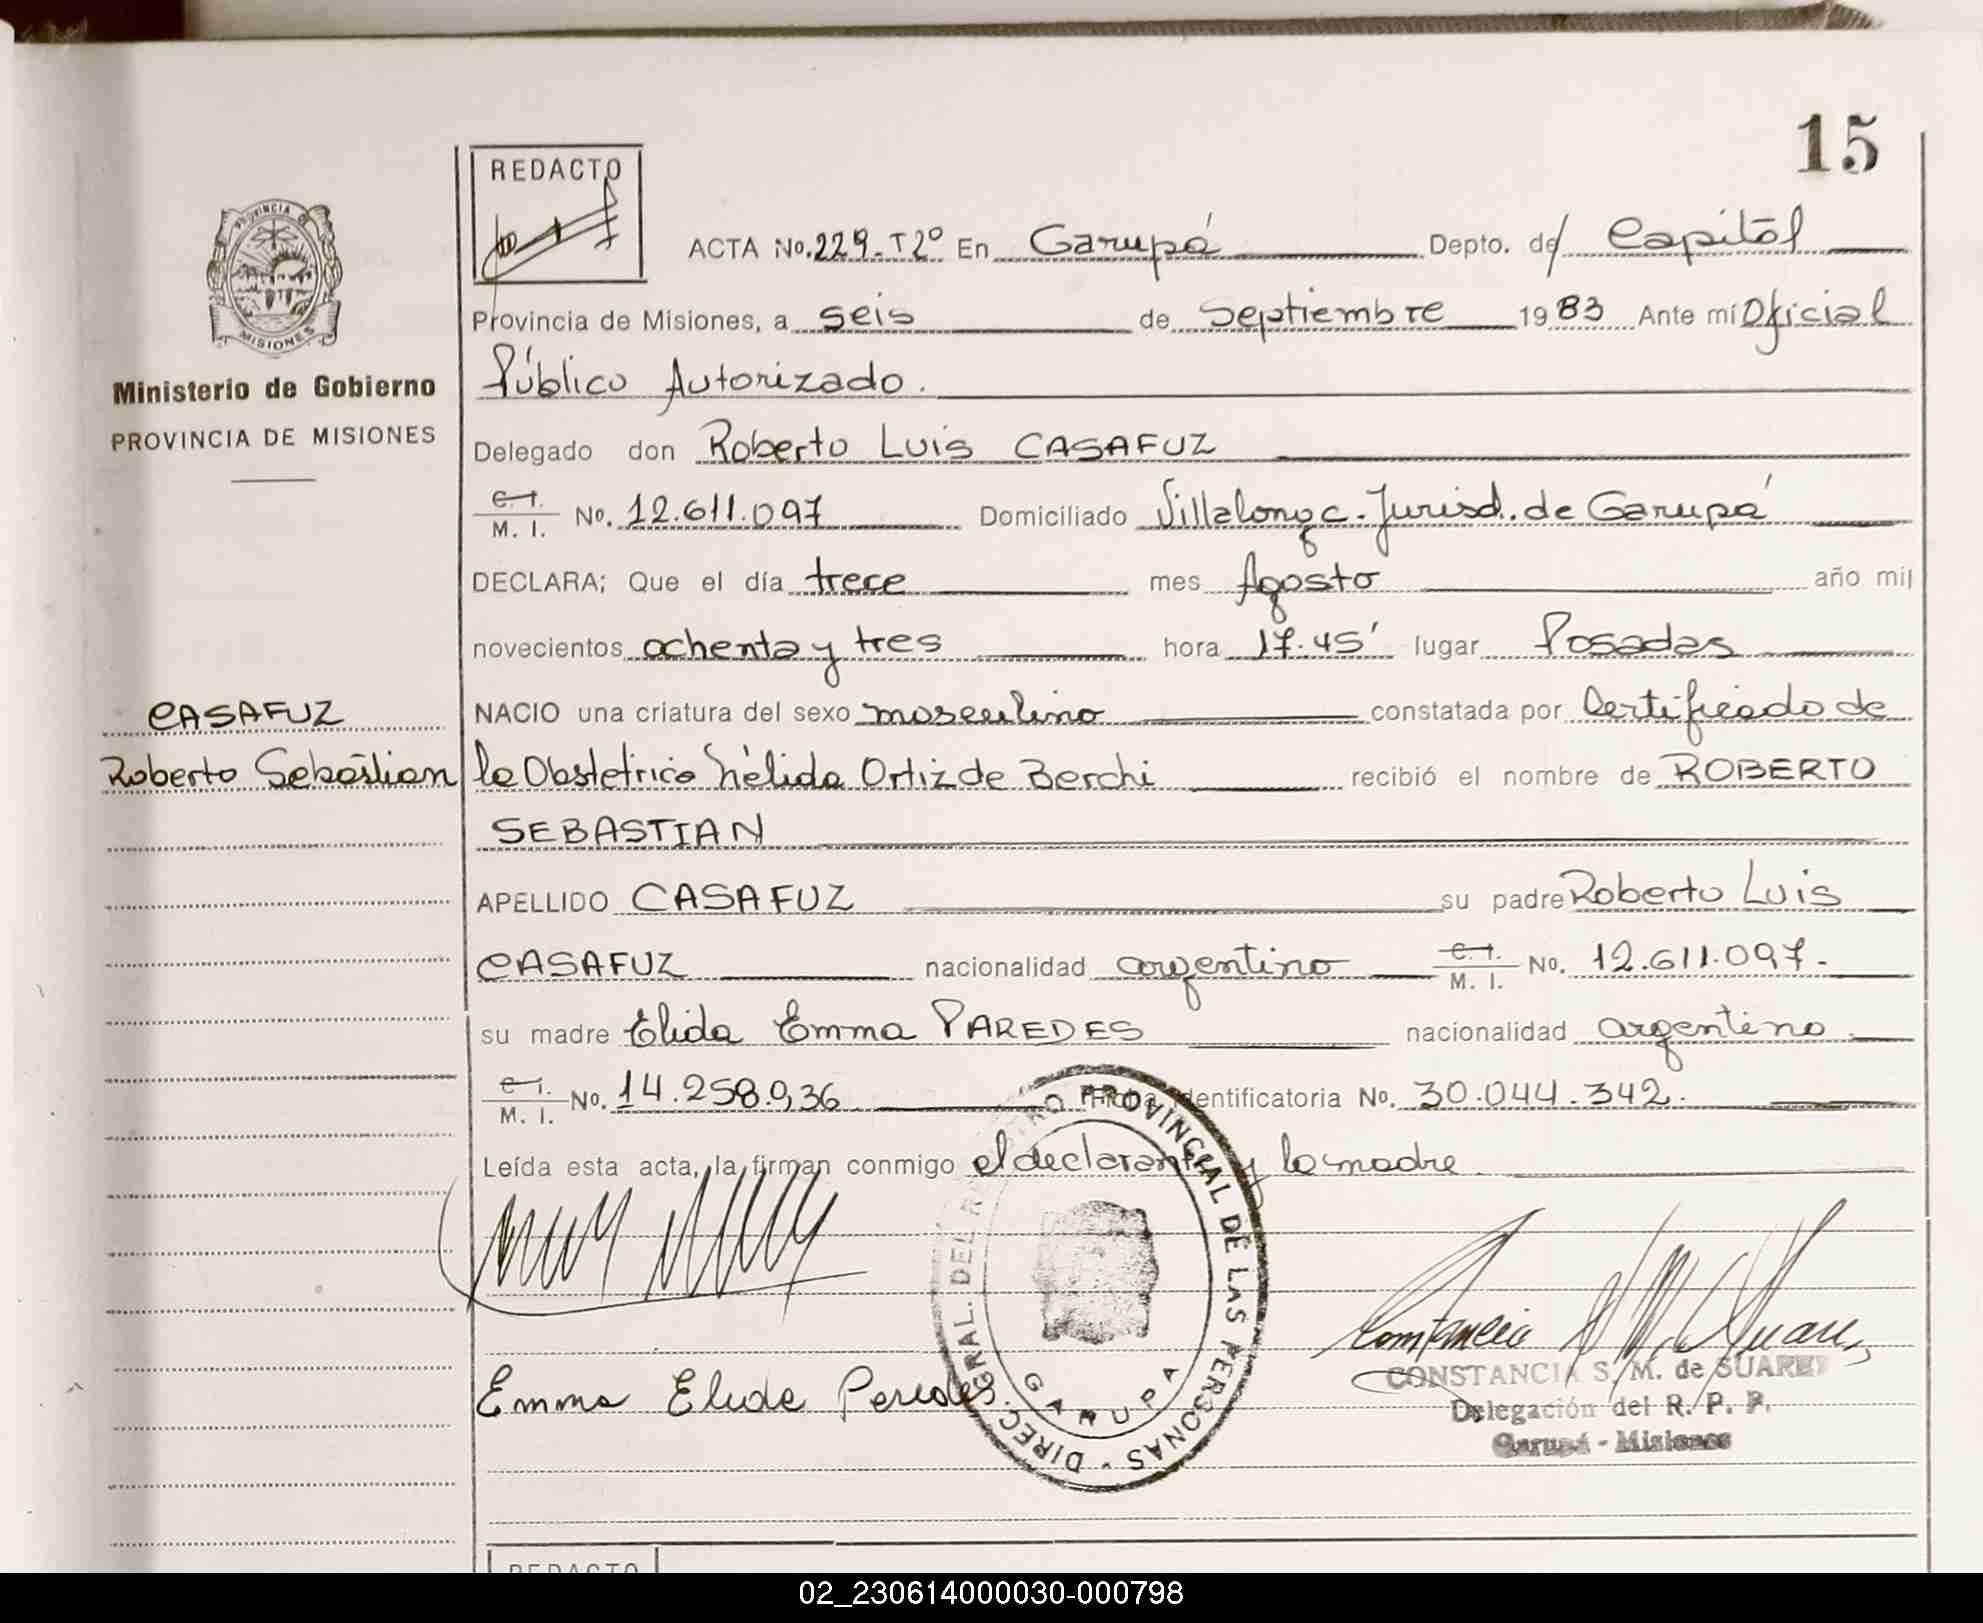 15
REDACTO
PROVINCIA DE
MISIONES
Ministerio de Gobierno
PROVINCIA DE MISIONES
ACTA No. 229-T2º En Garupá Depto. de Capital
Provincia de Misiones, a seis de Septiembre 1983 Ante mí Oficial
Público Autorizado.
Delegado don Roberto Luis CASAFUZ
C. I.
M. I. No. 12.611.097 Domiciliado Villalonga. Jurisd. de Garupá
DECLARA; Que el día trece mes Agosto año mil
novecientos ochenta y tres hora 17.45' lugar Posadas
CASAFUZ
Roberto Sebastian
NACIO una criatura del sexo masculino constatada por Certificado de
la Obstetrica Nélida Ortiz de Berchi recibió el nombre de ROBERTO
SEBASTIAN
APELLIDO CASAFUZ su padre Roberto Luis
CASAFUZ nacionalidad argentino C. I.
M. I. No. 12.611.097.-
su madre Elida Emma PAREDES nacionalidad argentina.
C. I.
M. I. No. 14.258.936 Identificatoria No. 30.044.342.
Leída esta acta, la firman conmigo el declarante y la madre.
DIREC. GRAL. DEL REGISTRO PROVINCIAL DE LAS PERSONAS
GARUPA
Emma Elida Paredes
Constancia S. M. de Suarez
CONSTANCIA S. M. de SUAREZ
Delegación del R. P. P.
Garupá - Misiones
REDACTO
02_230614000030-000798